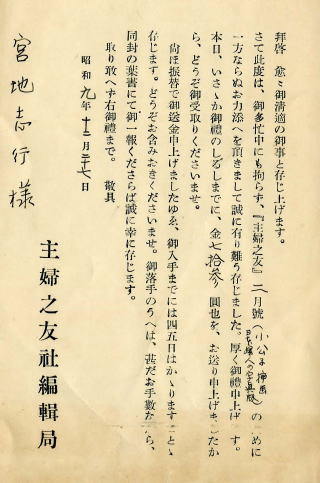 拜啓　愈々御清適の御事と存じ上げます。
さて此度は、御多忙中にも拘らず、『主婦之友』二月號（小公子挿畫
のために
一方ならぬお力添へを頂きまして誠に有り難う存じました。厚く御禮申上げます。
本日、いさゝか御禮のしるしまでに、金七拾參圓也を、お送り申上げましたか
ら、どうぞ御受取りくださいませ。
尙ほ振替で御送金申上げましたゆゑ、御入手までには四五日はかゝりますことゝ
存じます。どうぞお含みおきくださいませ。御落手のうへは、甚だお手數ながら、
同封の葉書にて御一報くださらば誠に幸に存じます。
取り敢へず右御禮まで。　敬具
昭和九年十二月二十七日
主婦之友社編輯局
宮地志行樣